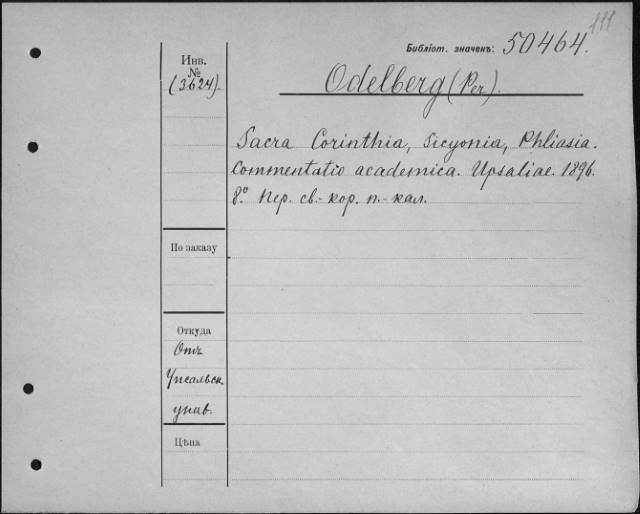 Библіот. значекъ: 50464.
Инв.
№
(3624).
Odelberg (Per).
Sacra Corinthia, Sicyonia, Phliasia.
Commentatio academica. Upsaliae. 1896.
8° Пер. св.-кор. п.-кал.
По заказу
Откуда
Отъ
Упсальск.
унив.
Цѣна